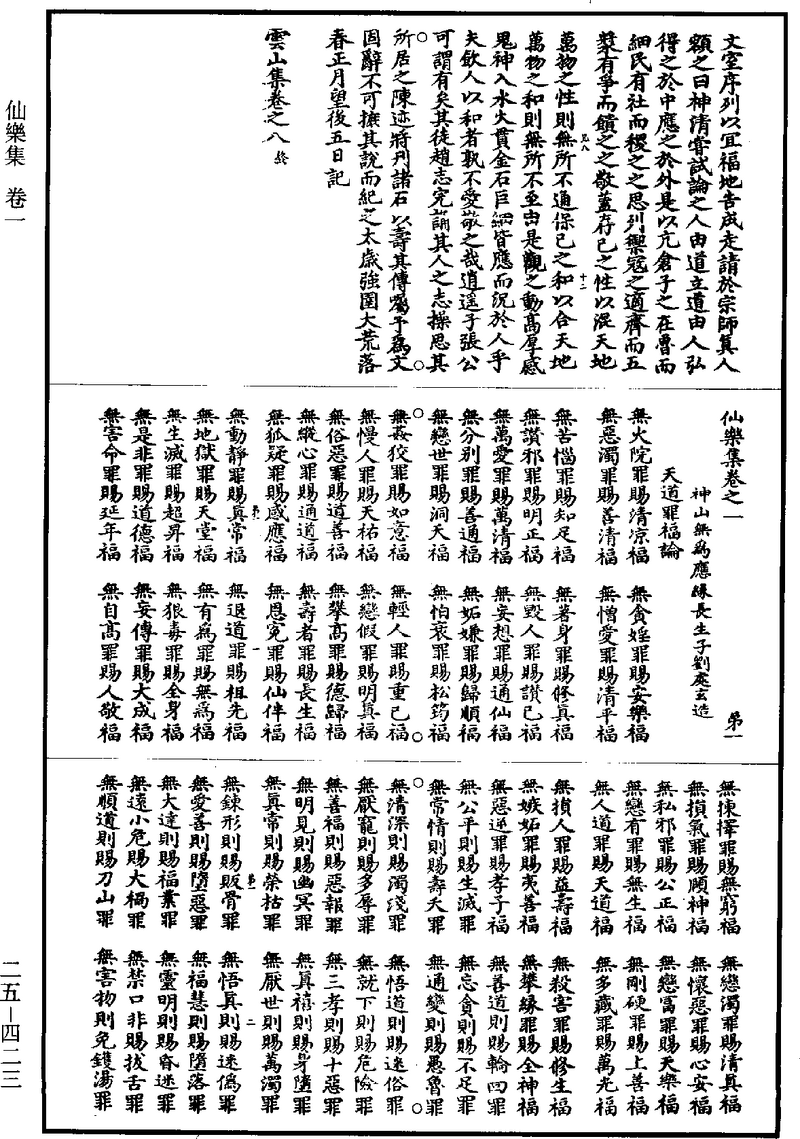 文室序列以宜福地告成走請於宗師真人
額之曰神清嘗試論之人由道立道由人弘
得之於中應之於外是以亢倉子之在魯而
細民有社而稷之之思列禦寇之適齊而五
漿有爭而饋之之敬蓋存已之性以混天地
萬物之性則無所不通保已之和以合天地
萬物之和則無所不至由是觀之動髙厚感
鬼神入水火貫金石巨細皆應而況於人乎
夫飲人以和者孰不愛敬之哉逍遥子張公
可謂有矣其徒趙志完誦其人之志操思其
所居之陳迹將刋諸石以壽其傳囑予爲文
固辭不可摭其說而紀之太歳強圉大荒落
春正月望後五日記
雲山集卷之八 終
仙樂集卷之一
神山無爲應緣長生子劉處玄造 第一
天道罪福論
無火院罪賜清凉福 無貪婬罪賜安樂福
無惡濁罪賜善清福 無憎愛罪賜清平福
無苦惱罪賜知足福 無著身罪賜修真福
無讚邪罪賜明正福 無毀人罪賜讚已福
無萬愛罪賜萬清福 無妄想罪賜通仙福
無分别罪賜善通福 無妬嫌罪賜歸順福
無戀世罪賜洞天福 無怕衰罪賜松筠福
無姦狡罪賜如意福 無輕人罪賜重已福
無慢人罪賜天祐福 無戀假罪賜明真福
無俗惡罪賜道善福 無攀髙罪賜德歸福
無縱心罪賜通道福 無壽者罪賜長生福
無狐疑罪賜感應福 無恩寃罪賜仙伴福
無動靜罪賜真常福 無退道罪賜祖先福
無地獄罪賜天堂福 無有爲罪賜無爲福
無生滅罪賜超昇福 無狠毒罪賜全身福
無是非罪賜道德福 無妄傳罪賜大成福
無害命罪賜延年福 無自髙罪賜人敬福
無揀擇罪賜無窮福 無戀濁罪賜清真福
無損氣罪賜順神福 無懷惡罪賜心安福
無私邪罪賜公正福 無戀富罪賜天樂福
無戀有罪賜無生福 無剛硬罪賜上善福
無人道罪賜天道福 無多藏罪賜萬光福
無損人罪賜益壽福 無殺害罪賜修生福
無嫉妬罪賜夷善福 無攀縁罪賜全神福
無惡逆罪賜孝子福 無善道則賜輪囘罪
無公平則賜生滅罪 無忘貪則賜不足罪
無常情則賜壽夭罪 無通變則賜愚魯罪
無清深則賜濁淺罪 無悟道則賜迷俗罪
無厭寵則賜多辱罪 無就下則賜危險罪
無善福則賜惡報罪 無三孝則賜十惡罪
無明見則賜幽冥罪 無真禧則賜身墮罪
無眞常則賜榮枯罪 無厭世則賜萬濁罪
無鍊形則賜販骨罪 無悟真則賜迷僞罪
無愛善則賜墮惡罪 無福慧則賜墮落罪
無大達則賜福業罪 無靈明則賜昏迷罪
無遠小危賜大禍罪 無禁口非賜拔舌罪
無順道則賜刀山罪 無害物則免鑊湯罪
仙樂集 卷一
二五—四二三